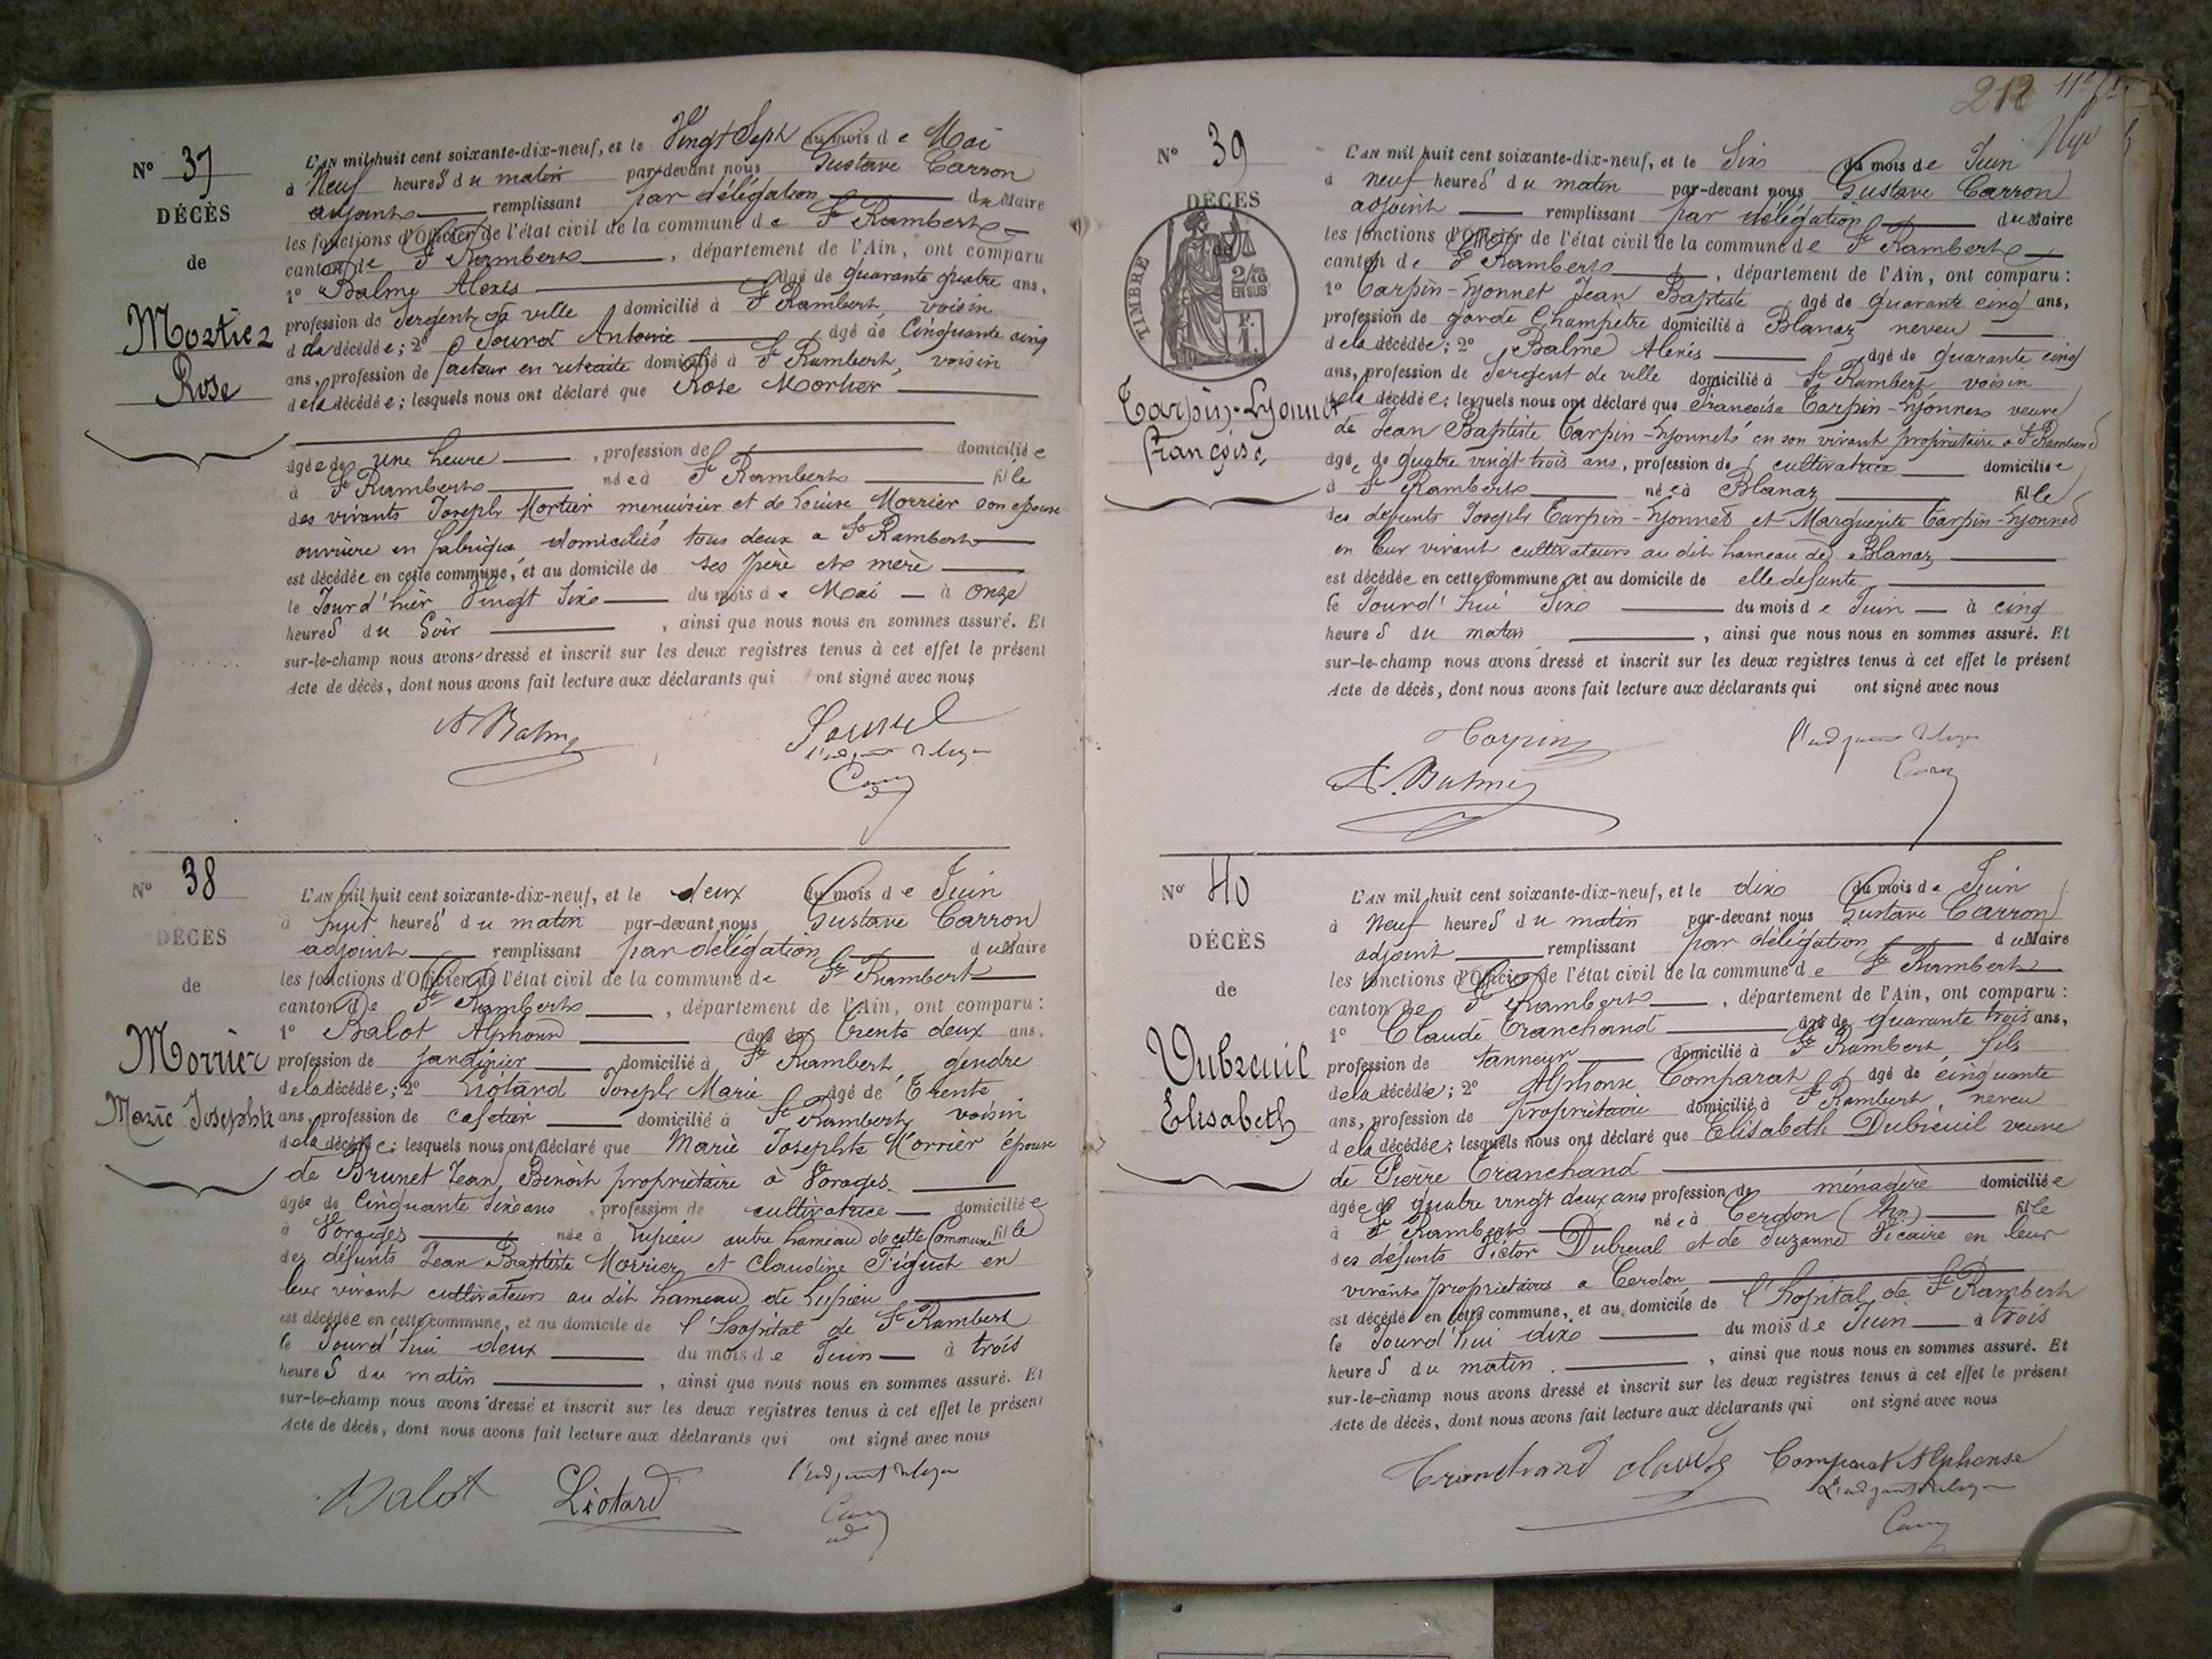 No 37
DÉCÈS
de
Mortier
Rose
L'AN mil huit cent soixante-dix-neuf, et le Vingt Sept du mois de Mai
à Neuf heures du matin par-devant nous Gustave Carron
adjoint remplissant par délégation du Maire
les fonctions d'Officier de l'état civil de la commune de St Rambert
canton de St Rambert, département de l'Ain, ont comparu
1o Balme Alexis âgé de quarante quatre ans,
profession de Sergent de ville domicilié à St Rambert, voisin
de la décédée; 2o Sourd Antoine âgé de Cinquante cinq
ans, profession de facteur en retraite domicilié à St Rambert, voisin
de la décédée; lesquels nous ont déclaré que Rose Mortier
âgée de une heure, profession de domiciliée
à St Rambert née à St Rambert fille
des vivants Joseph Mortier menuisier et de Louise Morrier son épouse
ouvrière en fabrique domiciliés tous deux a St Rambert
est décédée en cette commune, et au domicile de ses père et mère
le Jourd'hier Vingt Six du mois de Mai à onze
heures du Soir, ainsi que nous nous en sommes assuré. Et
sur-le-champ nous avons dressé et inscrit sur les deux registres tenus à cet effet le présent
Acte de décès, dont nous avons fait lecture aux déclarants qui ont signé avec nous
A Balme
l'adjoint délégué
No 38
DÉCÈS
de
Morrier
Marie Josephte
L'AN mil huit cent soixante-dix-neuf, et le deux du mois de Juin
à huit heures du matin par-devant nous Gustave Carron
adjoint remplissant par délégation du Maire
les fonctions d'Officier de l'état civil de la commune de St Rambert
canton de St Rambert, département de l'Ain, ont comparu:
1o Balot Alphonse âgé de trente deux ans,
profession de jardinier domicilié à St Rambert, gendre
de la décédée; 2o Liotard Joseph Marie âgé de Trente
ans, profession de cafetier domicilié à St Rambert, voisin
de la décédée; lesquels nous ont déclaré que Marie Josephte Morrier épouse
de Brunet Jean Benoit propriétaire à Vorages
âgée de Cinquante Six ans, profession de cultivatrice domiciliée
à Vorages née à Lupieu autre hameau de cette Commune fille
des défunts Jean Baptiste Morrier et Claudine Tiguet en
leur vivant cultivateurs au dit hameau de Lupieu
est décédée en cette commune, et au domicile de l'hopital de St Rambert
le Jourd'hui deux du mois de Juin à trois
heures du matin, ainsi que nous nous en sommes assuré. Et
sur-le-champ nous avons dressé et inscrit sur les deux registres tenus à cet effet le présent
Acte de décès, dont nous avons fait lecture aux déclarants qui ont signé avec nous
Balot Liotard l'adjoint délégué
212
No 39
DÉCÈS
de
TIMBRE
2/10
EN SUS
Carpin-Lyonnet
Françoise
L'AN mil huit cent soixante-dix-neuf, et le Six du mois de Juin
à neuf heures du matin par-devant nous Gustave Carron
adjoint remplissant par délégation du Maire
les fonctions d'Officier de l'état civil de la commune de St Rambert
canton de St Rambert, département de l'Ain, ont comparu:
1o Carpin-Lyonnet Jean Baptiste âgé de quarante cinq ans,
profession de garde Champêtre domicilié à Blanaz neveu
de la décédée; 2o Balme Alexis âgé de quarante cinq
ans, profession de Sergent de ville domicilié à St Rambert voisin
de la décédée; lesquels nous ont déclaré que Françoise Carpin-Lyonnet veuve
de Jean Baptiste Carpin-Lyonnet en son vivant propriétaire a St Rambert
âgée de quatre vingt trois ans, profession de cultivatrice domiciliée
à St Rambert née à Blanaz fille
des défunts Joseph Carpin-Lyonnet et Marguerite Carpin-Lyonnet
en leur vivant cultivateurs au dit hameau de Blanaz
est décédée en cette commune, et au domicile de elle défunte
le Jourd'hui Six du mois de Juin à cinq
heures du matin, ainsi que nous nous en sommes assuré. Et
sur-le-champ nous avons dressé et inscrit sur les deux registres tenus à cet effet le présent
Acte de décès, dont nous avons fait lecture aux déclarants qui ont signé avec nous
Carpin l'adjoint délégué
A. Balme
No 40
DÉCÈS
de
Dubreuil
Elisabeth
L'AN mil huit cent soixante-dix-neuf, et le dix du mois de Juin
à Neuf heures du matin par-devant nous Gustave Carron
adjoint remplissant par délégation du Maire
les fonctions d'Officier de l'état civil de la commune de St Rambert
canton de St Rambert, département de l'Ain, ont comparu:
1o Claude Tranchand âgé de quarante trois ans,
profession de tanneur domicilié à St Rambert, fils
de la décédée; 2o Alphonse Comparat âgé de cinquante
ans, profession de propriétaire domicilié à St Rambert, neveu
de la décédée; lesquels nous ont déclaré que Elisabeth Dubreuil veuve
de Pierre Tranchand
âgée de quatre vingt deux ans profession de ménagère domiciliée
à St Rambert née à Cerdon (Ain) fille
des défunts Victor Dubreuil et de Suzanne Vicaire en leur
vivants propriétaires a Cerdon
est décédée en cette commune, et au domicile de l'hopital de St Rambert
le Jourd'hui dix du mois de Juin à trois
heures du matin, ainsi que nous nous en sommes assuré. Et
sur-le-champ nous avons dressé et inscrit sur les deux registres tenus à cet effet le présent
Acte de décès, dont nous avons fait lecture aux déclarants qui ont signé avec nous
Tranchand Claude Comparat Alphonse
L'adjoint délégué